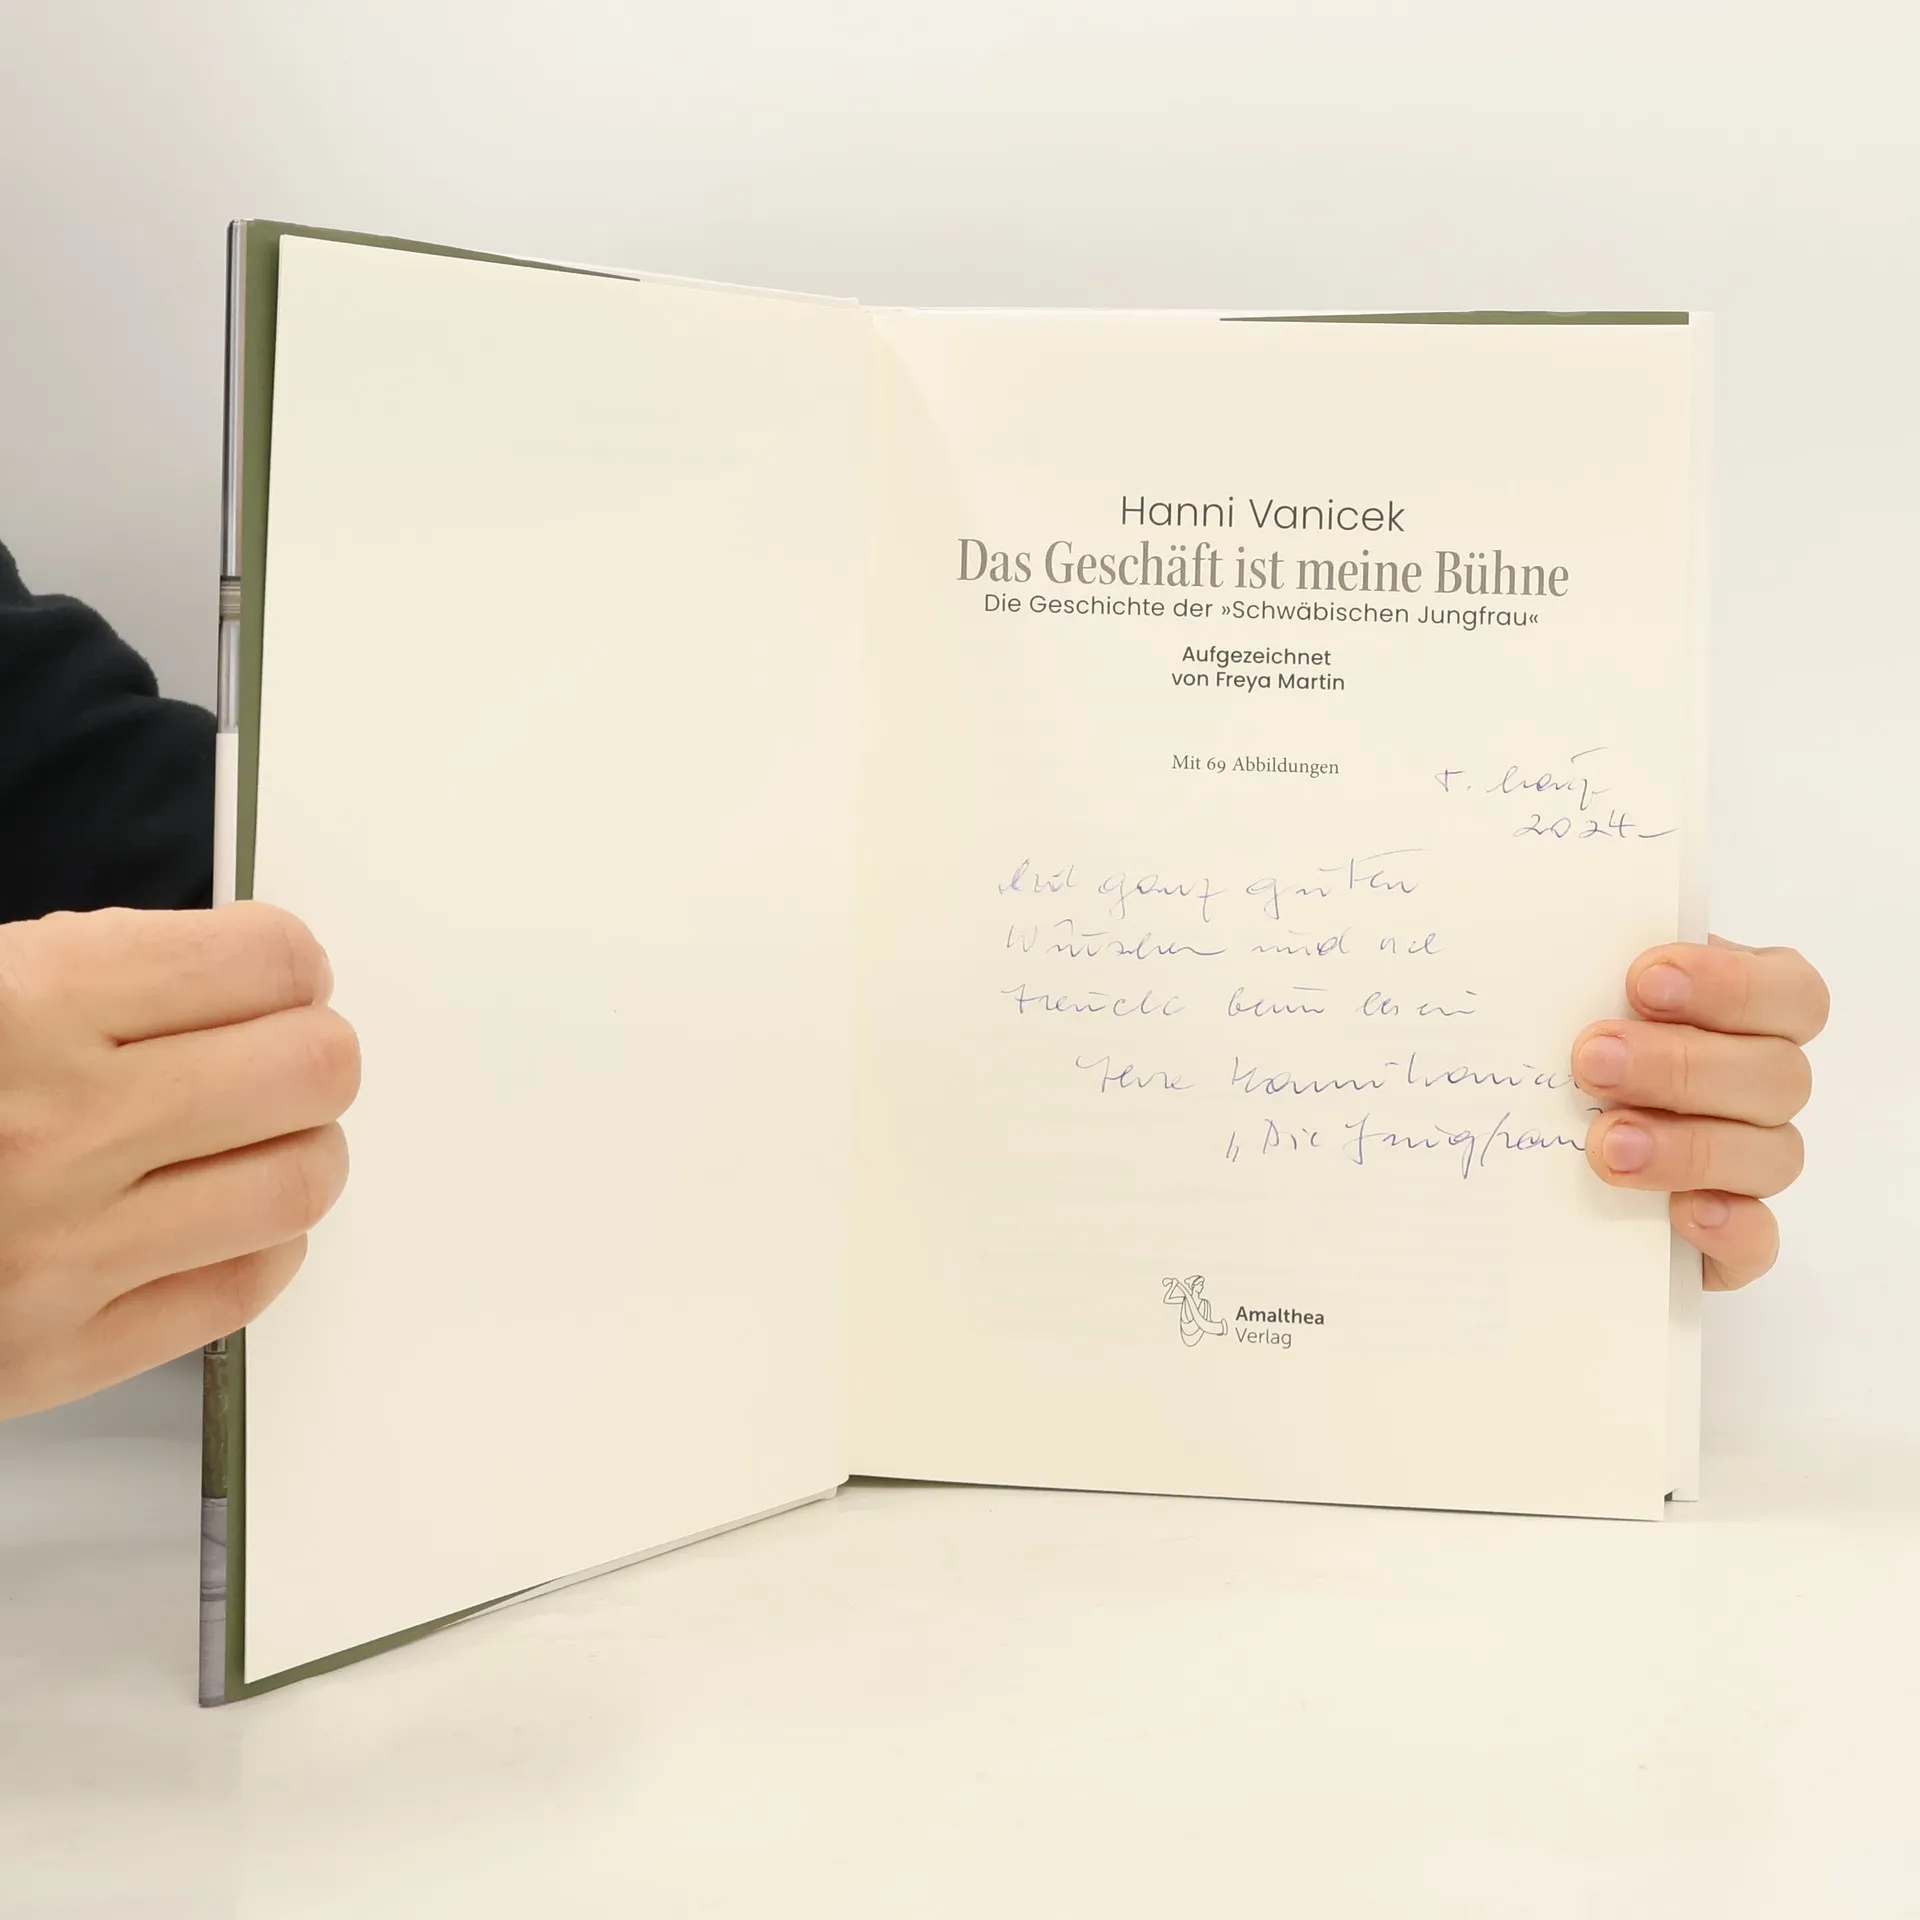 Hanni Vanicek
Das Geschäft ist meine Bühne
Die Geschichte der »Schwäbischen Jungfrau«
Aufgezeichnet
von Freya Martin
Mit 69 Abbildungen
2024
Mit ganz guten
Wünschen und viel
Freude beim Lesen
Ihre Hanni Vanicek
„Die Jungfrau"
Amalthea
Verlag